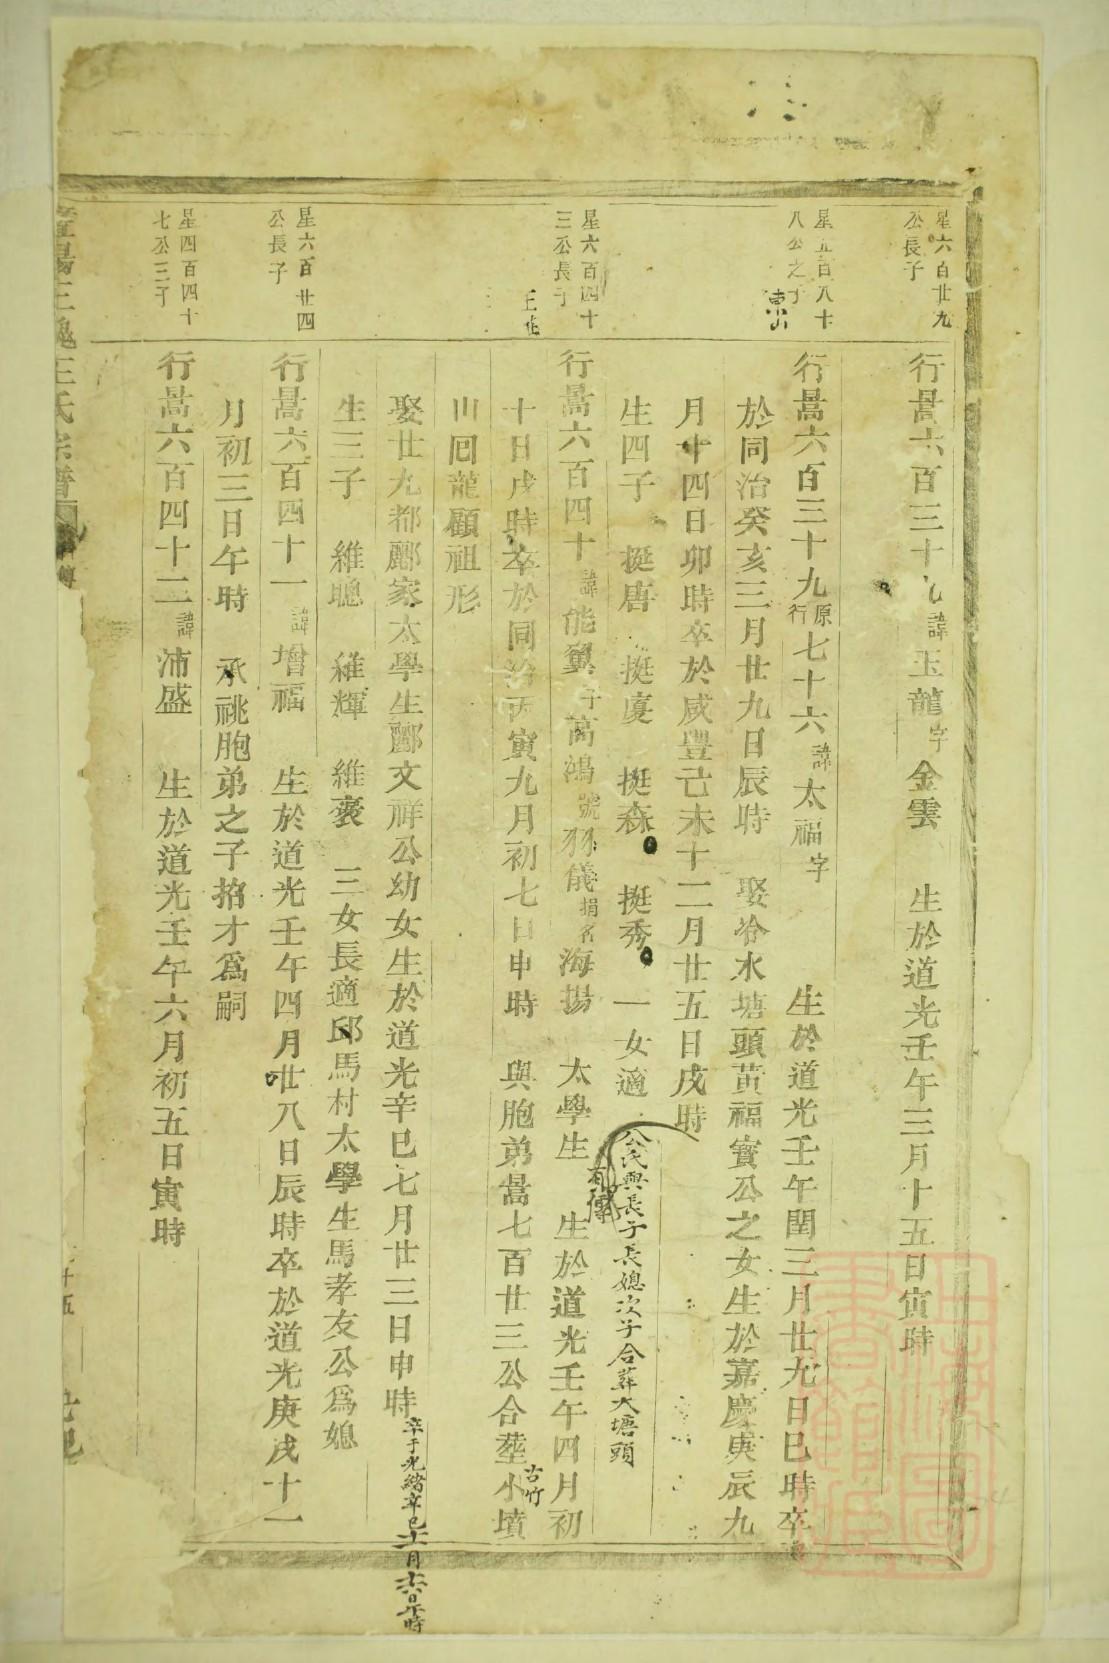 星六百廿九
公長子
行暠六百三十八諱玉龍字金雲 生於道光壬午三月十五日寅時
星五百八十
八公之子
東山
行暠六百三十九原行七十六諱太福字 生於道光壬午閏三月廿九日巳時卒
於同治癸亥三月廿九日辰時 娶冷水塘頭黃福寶公之女生於嘉慶庚辰九
月十四日卯時卒於咸豐己未十二月廿五日戌時
生四子 挺唐 挺廈 挺森 挺秀 一女適
公氏與長子長媳次子合葬大塘頭
星六百四十
三公長子
行暠六百四十諱能翼字萬鴻號 儀捐名海揚 太學生 生於道光壬午四月初
有傳
十日戌時卒於同治丙寅九月初七日申時 與胞弟暠七百廿三公合塟小墳
古竹
山回龍顧祖形
娶廿九都酈家太學生酈文祥公幼女生於道光辛巳七月廿三日申時
卒于光緒辛巳十一月十六日午時
生三子 維聰 維輝 維褒 三女長適邱馬村太學生馬孝友公爲媳
星六百廿四
公長子
行暠六百四十一諱增福 生於道光壬午四月廿八日辰時卒於道光庚戌十一
月初三日午時 承祧胞弟之子招才爲嗣
星四百四十
七公三子
行暠六百四十二諱沛盛 生於道光壬午六月初五日寅時
王氏宗譜